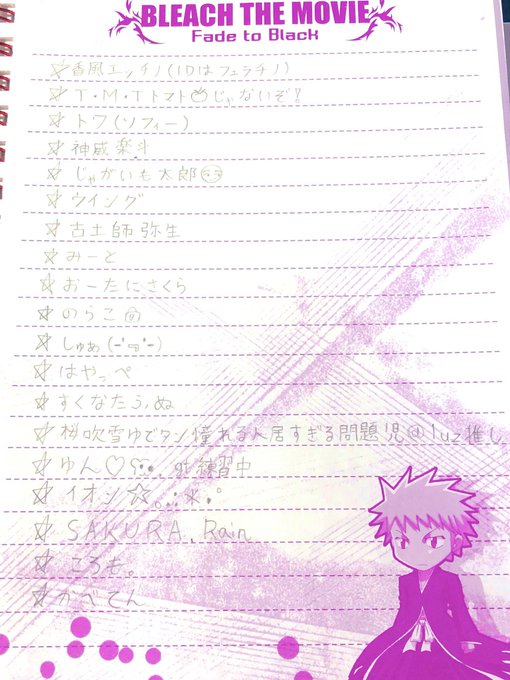 BLEACH THE MOVIE
Fade to Black
☆香風エンチノ(IDはフェラチノ)
☆T・M・Tトマト🍅じゃないぞ!
☆トワ(ソフィー)
☆神威楽斗
☆じゃがいも太郎
☆ウイング
☆古土師弥生
☆みーと
☆おーたにさくら
☆のらこ@
☆しゅあ
☆はやっぺ
☆すくなたう,ぬ
☆桜吹雪ゆでタン憧れる人居すぎる問題児@luz推し
☆ゆん♡ gt練習中
☆イオン☆
☆SAKURA.Rain
☆ころも。
☆かべてん